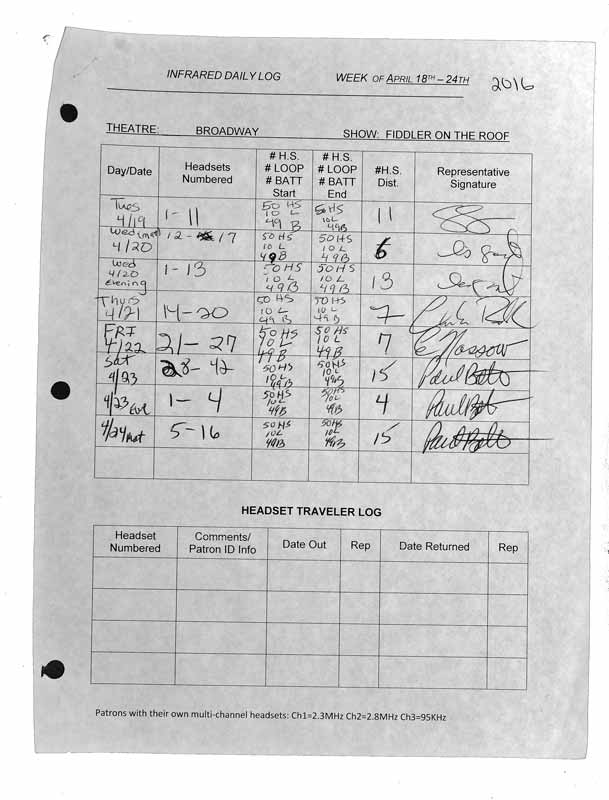 INFRARED DAILY LOG WEEK OF APRIL 18TH – 24TH 2016
THEATRE: BROADWAY SHOW: FIDDLER ON THE ROOF
Day/Date Headsets Numbered # H.S. # LOOP # BATT Start # H.S. # LOOP # BATT End #H.S. Dist. Representative Signature
Tues 4/19 1-11 50 HS 10 L 49 B 50 HS 10 L 49B 11
Wed (mat) 4/20 12- 17 50 HS 10 L 49B 50HS 10 L 49B 6
Wed 4/20 Evening 1-13 50HS 10 L 49B 50HS 10 L 49B 13
Thurs 4/21 14-20 50 HS 10 L 49 B 50HS 10 L 49B 7
FRI 4/22 21-27 50 HS 10 L 49B 50HS 10 L 49B 7
Sat 4/23 28-42 50HS 10 L 49B 50HS 10L 49B 15 Paul
4/23 Eve 1-4 50HS 10L 49B 50HS 10L 49B 4 Paul
4/24 mat 5-16 50 HS 10L 49B 50HS 10L 49B 15 Paul
HEADSET TRAVELER LOG
Headset Numbered Comments/ Patron ID Info Date Out Rep Date Returned Rep
Patrons with their own multi-channel headsets: Ch1=2.3MHz Ch2=2.8MHz Ch3=95KHz